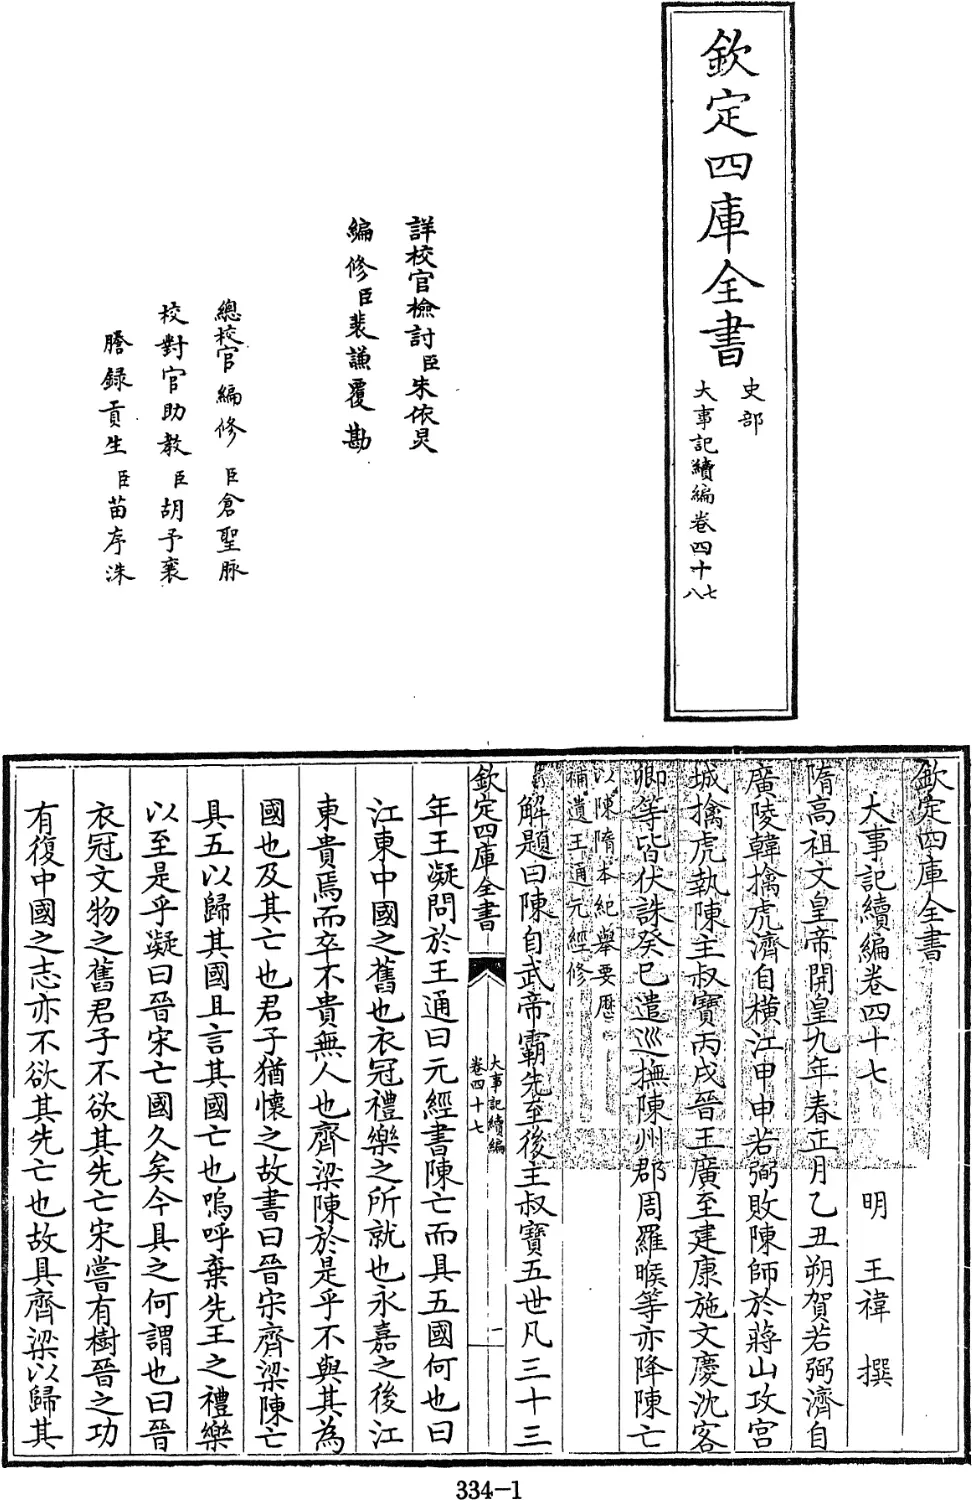 欽定四庫全書
史部
大事記續編卷四十七
八
詳校官檢討臣朱依炅
編修臣裴謙覆勘
總校官編修臣倉聖脉
校對官助教臣胡予襄
謄錄貢生臣苗序洙
欽定四庫全書
大事記續編卷四十七
明 王禕 撰
隋高祖文皇帝開皇九年春正月乙丑朔賀若弼濟自
廣陵韓擒虎濟自橫江甲申若弼敗陳師於蔣山攻宮
城擒虎執陳主叔寶丙戌晉王廣至建康施文慶沈客
卿等皆伏誅癸巳遣巡撫陳州郡周羅睺等亦降陳亡
以陳隋本紀舉要歷
補遺王通元經修
解題曰陳自武帝霸先至後主叔寶五世凡三十三
欽定四庫全書
大事記續編
卷四十七
一
年王凝問於王通曰元經書陳亡而具五國何也曰
江東中國之舊也衣冠禮樂之所就也永嘉之後江
東貴焉而卒不貴無人也齊梁陳於是乎不與其為
國也及其亡也君子猶懷之故書曰晉宋齊梁陳亡
具五以歸其國且言其國亡也嗚呼棄先王之禮樂
以至是乎凝曰晉宋亡國久矣今具之何謂也曰晉
衣冠文物之舊君子不欲其先亡宋嘗有樹晉之功
有復中國之志亦不欲其先亡也故具齊梁以歸其
334-1